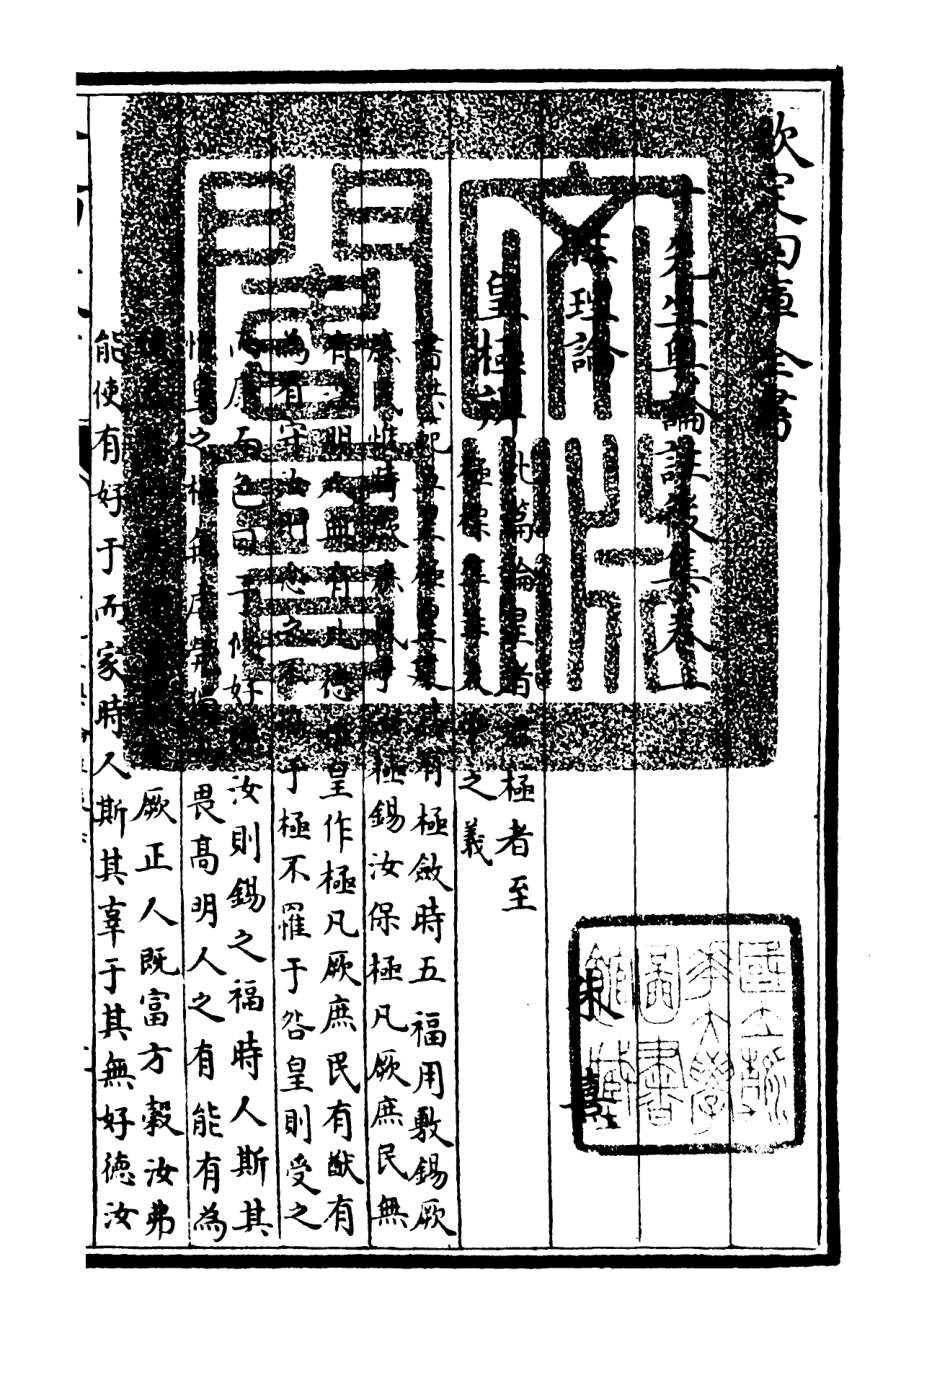 欽定四庫全書
十先生奥論註後集卷一
性理論　朱熹
皇極辨　此篇論皇者君極者至
極　之義
書洪範五皇極皇建其有極斂時五福用敷錫厥
庶民惟時厥庶民于汝極錫汝保極凡厥庶民無
有淫朋人無有比德惟皇作極凡厥庶民有猷有
為有守汝則念之不協于極不罹于咎皇則受之
而康而色曰予攸好德汝則錫之福時人斯其
惟皇之極無虐煢獨而畏髙明人之有能有為
厥正人既富方榖汝弗
能使有好于而家時人斯其辜于其無好德汝
文淵閣寶
國立浙江大學圖書館藏